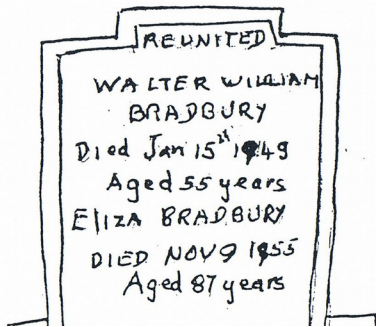 REUNITED
WALTER WILLIAM
BRADBURY
Died Jan 15st 1949
Aged 55 years
ElIZA BRADBURY
DIED NOV 9 1955
Aged 87 years